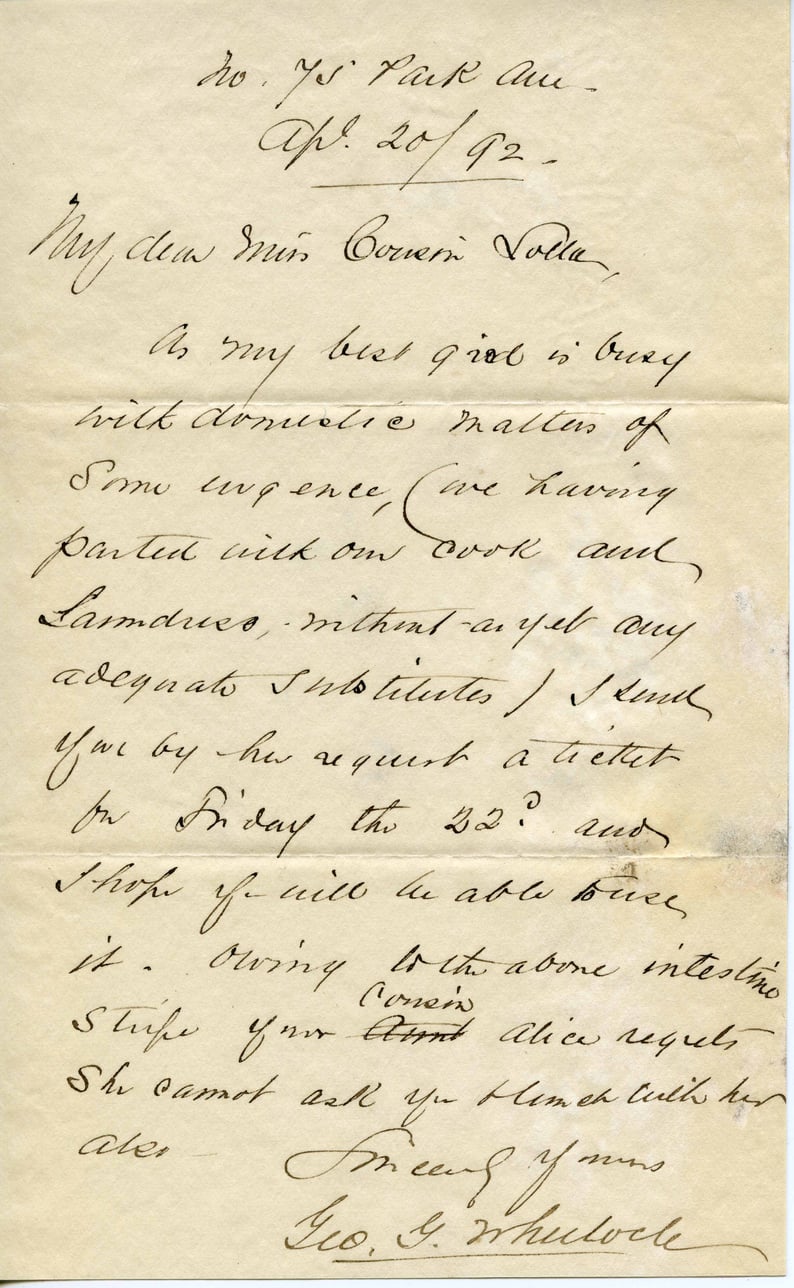 No. 75 Park Ave.
Apl. 20/92.
My dear Miss Cousin Lolla,
As my best girl is busy
with domestic matters of
some urgence, (we having
parted with our cook and
Laundress, without as yet any
adequate substitutes) I send
you by her request a ticket
for Friday the 22d. and
I hope yu will be able to use
it. Owing to the above intestine
Cousin
strife your Aunt Alice regrets
She cannot ask yu to lunch with her
also
Sincerely Yours
Geo. G. Wheelock